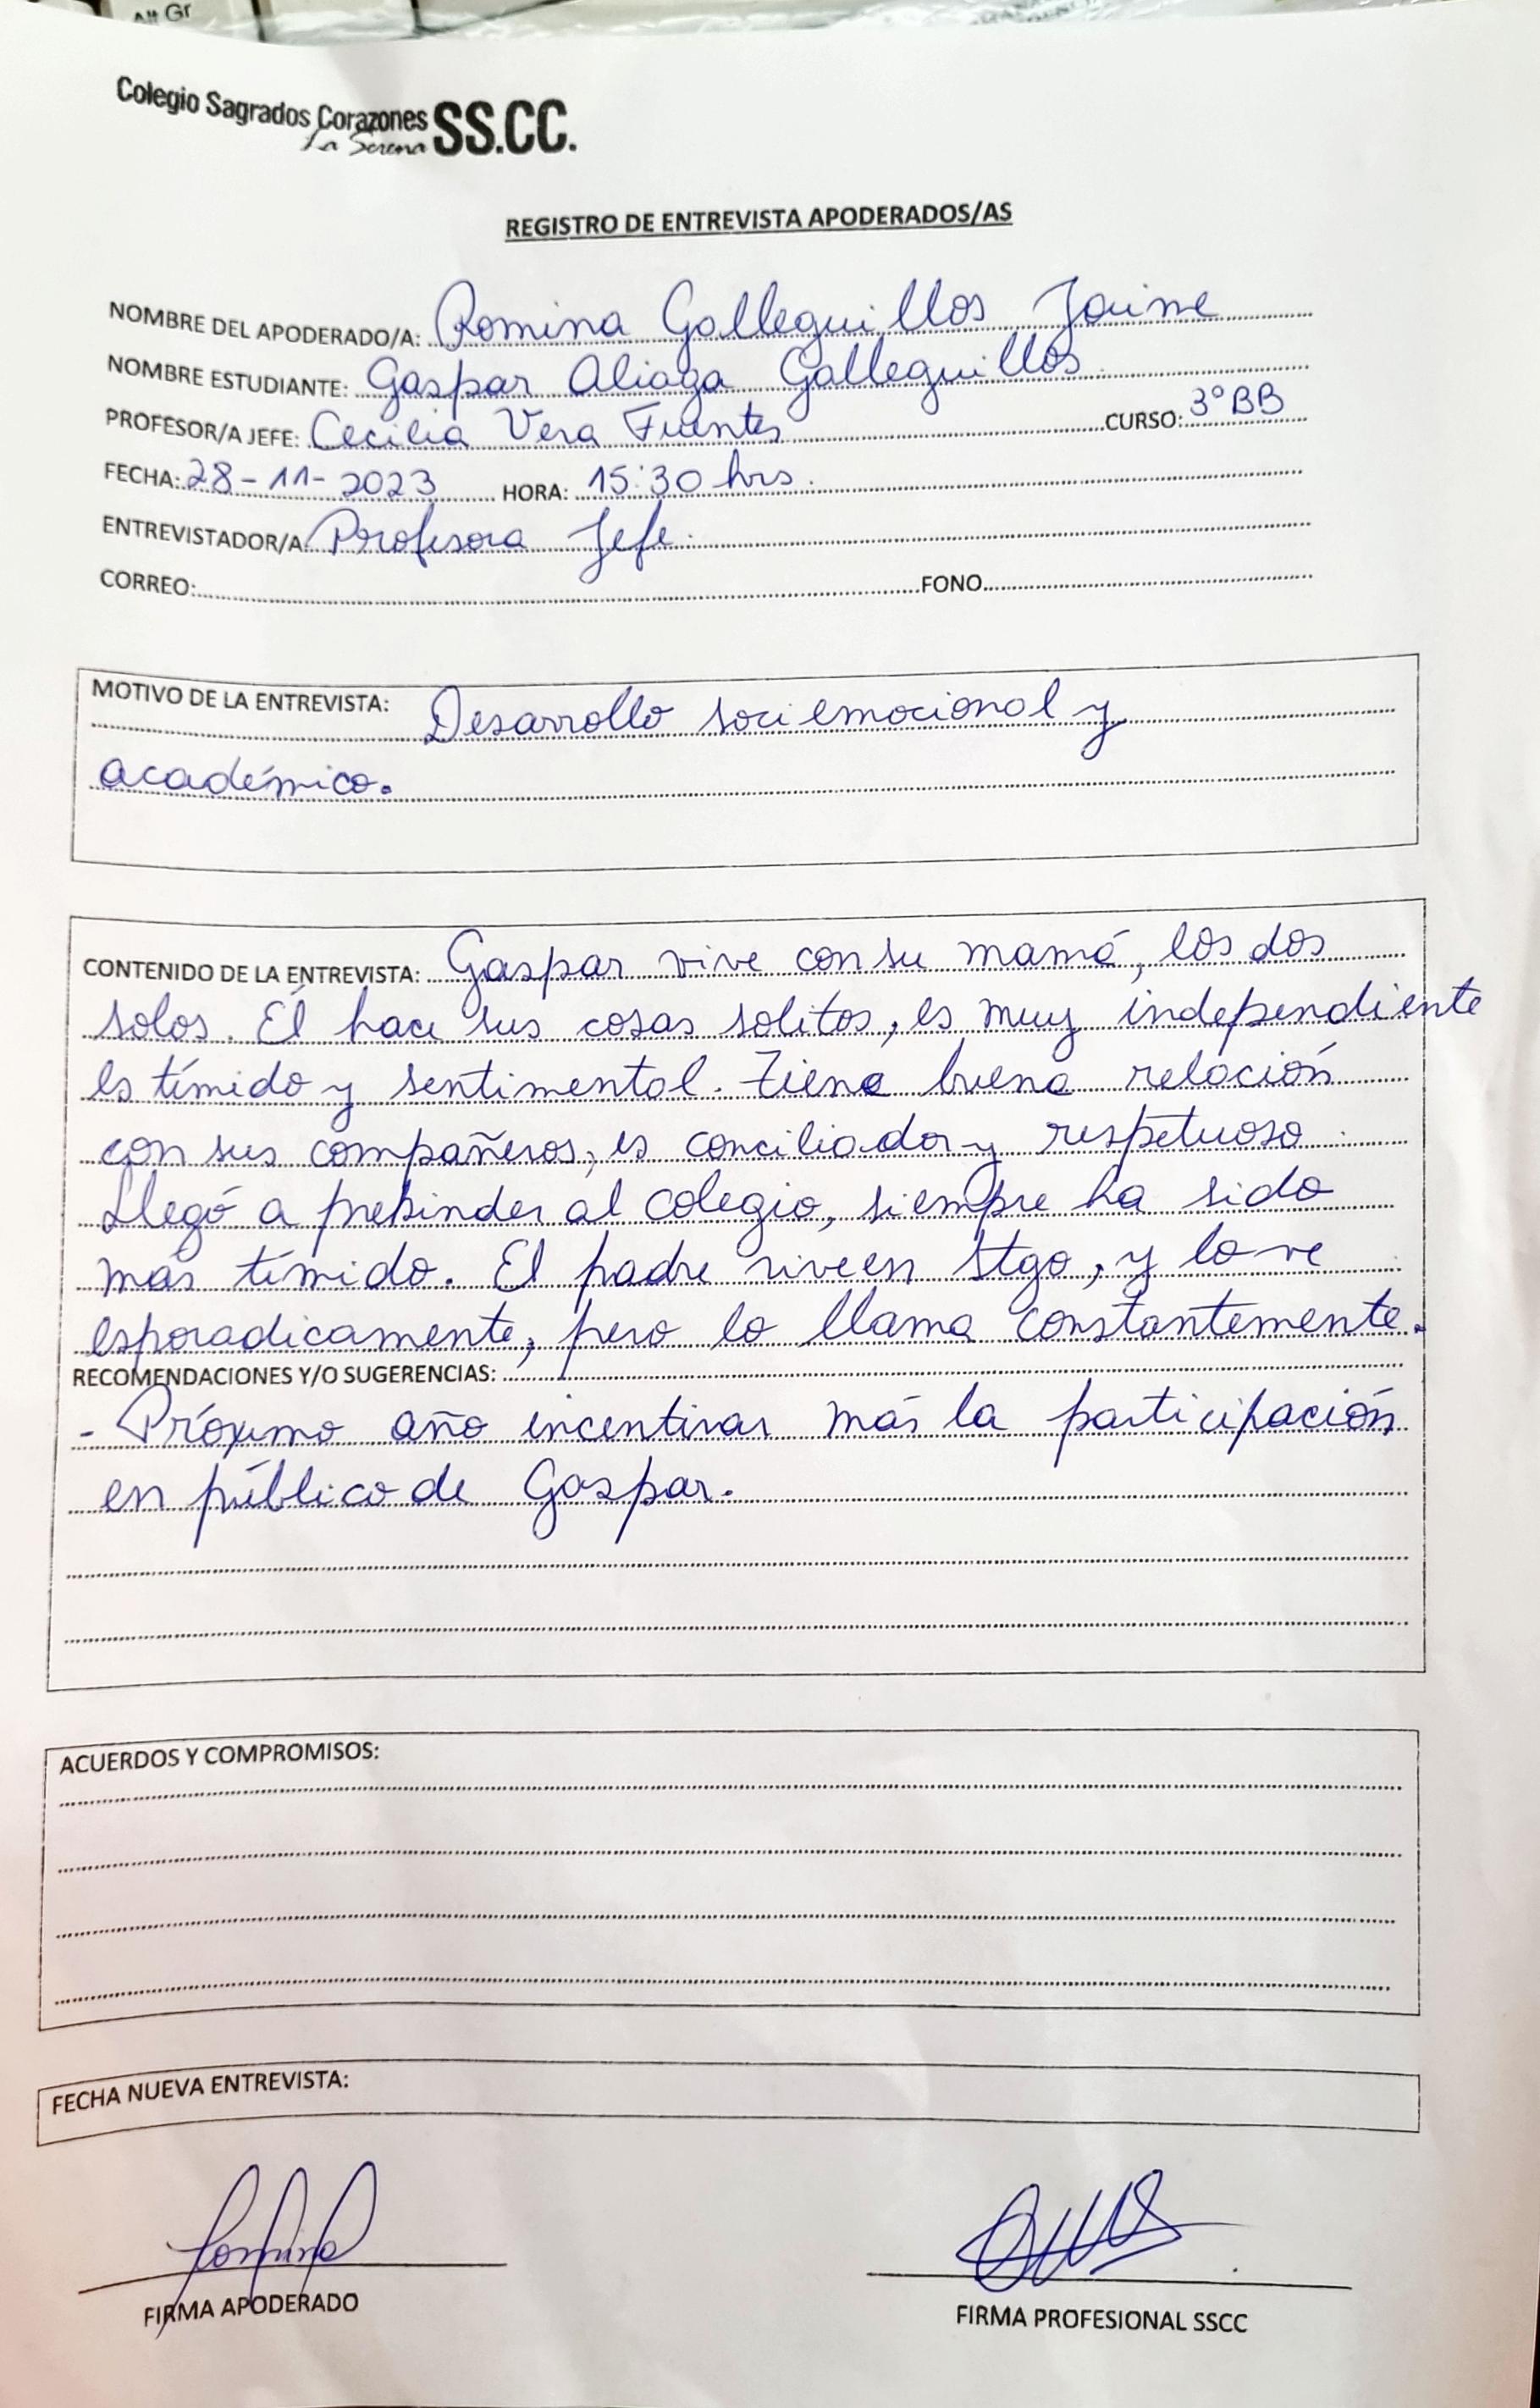 Alt Gr
Colegio Sagrados Corazones SS.CC.
La Serena
REGISTRO DE ENTREVISTA APODERADOS/AS
NOMBRE DEL APODERADO/A: Romina Galleguillos Jaime
NOMBRE ESTUDIANTE: Gaspar Aliaga Galleguillos
PROFESOR/A JEFE: Cecilia Vera Fuentes CURSO: 3°BB
FECHA: 28-11-2023 HORA: 15:30 hrs.
ENTREVISTADOR/A: Profesora Jefe.
CORREO: FONO
MOTIVO DE LA ENTREVISTA: Desarrollo sociemocional y
académico.
CONTENIDO DE LA ENTREVISTA: Gaspar vive con su mamá, los dos
solos. Él hace sus cosas solitos, es muy independiente
es tímido y sentimental. Tiene buena relación
con sus compañeros, es conciliador y respetuoso.
Llegó a prekinder al colegio, siempre ha sido
más tímido. El padre vive en Stgo, y lo ve
esporadicamente, pero lo llama constantemente.
RECOMENDACIONES Y/O SUGERENCIAS:
- Próximo año incentivar más la participación
en público de Gaspar.
ACUERDOS Y COMPROMISOS:
FECHA NUEVA ENTREVISTA:
FIRMA APODERADO
FIRMA PROFESIONAL SSCC